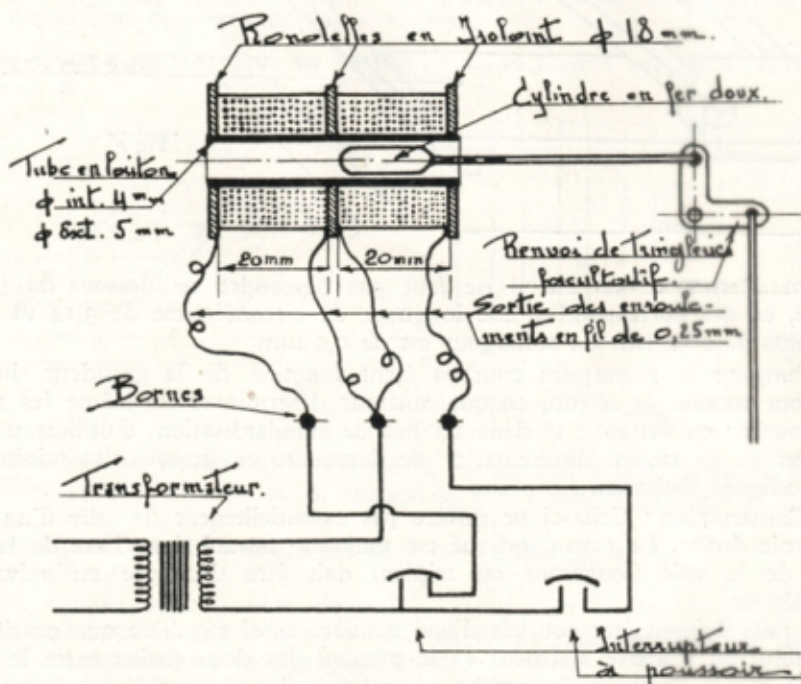 Rondelles en Isolant ϕ 18 mm.
Cylindre en fer doux.
Tube en laiton
ϕ int. 4 mm
ϕ Ext. 5 mm
20mm
20mm
Renvoi de Tringlerie
facultatif
Sortie des enroule-
ments en fil de 0,25mm
Bornes
Transformateur.
Interrupteur
à poussoir